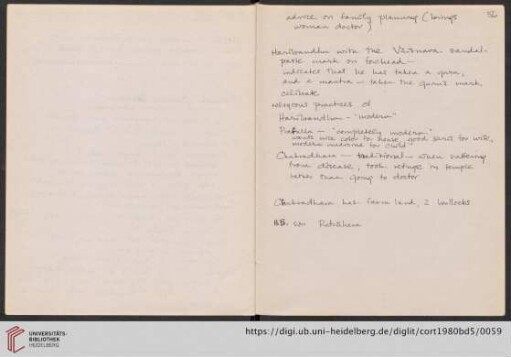 52
advice on family planning (brings
woman doctor)
Haribandhu with the Vaisnava sandal-
paste mark on forehead —
indicates that he has taken a guru,
and a mantra — taken the guru's mark
celibate
religious practices of
Haribandhu — "modern"
Prafulla — "completely modern"
wants nice color for house, good saris for wife,
modern medicine for child
Chakradhara — traditional — when suffering
from disease, took refuge in temple
rather than going to doctor
Chakradhara has farm land, 2 bullocks
son
UNIVERSITÄTS-
BIBLIOTHEK
HEIDELBERG
https://digi.ub.uni-heidelberg.de/diglit/cort1980bd5/0059